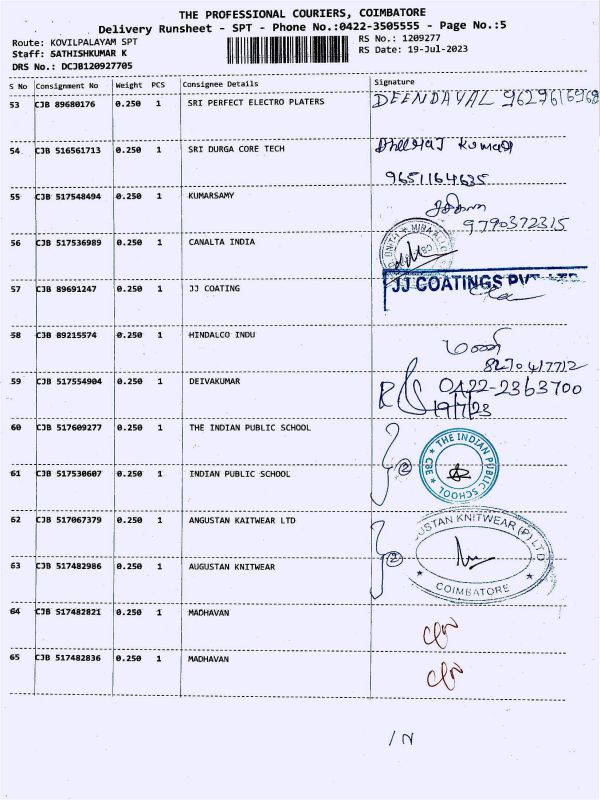 THE PROFESSIONAL COURIERS, COIMBATORE
Delivery Runsheet - SPT - Phone No.:0422-3505555 - Page No.:5
Route: KOVILPALAYAM SPT RS No.: 1209277
Staff: SATHISHKUMAR K RS Date: 19-Jul-2023
DRS No.: DCJB120927705
S No Consignment No Weight PCS Consignee Details Signature
53 CJB 89680176 0.250 1 SRI PERFECT ELECTRO PLATERS DEENDAYAL 9629616968
54 CJB 516561713 0.250 1 SRI DURGA CORE TECH Dheeraj Kumar
9651164635
55 CJB 517548494 0.250 1 KUMARSAMY
9790372315
56 CJB 517536989 0.250 1 CANALTA INDIA
UNIT-I MIRAB CBE
57 CJB 89691247 0.250 1 JJ COATING JJ COATINGS PVT LTD
58 CJB 89215574 0.250 1 HINDALCO INDU மணி
8270417712
59 CJB 517554904 0.250 1 DEIVAKUMAR 0422-2363700
19/7/23
60 CJB 517609277 0.250 1 THE INDIAN PUBLIC SCHOOL
THE INDIAN PUBLIC SCHOOL CBE
2
61 CJB 517530607 0.250 1 INDIAN PUBLIC SCHOOL
62 CJB 517067379 0.250 1 ANGUSTAN KAITWEAR LTD
USTAN KNITWEAR (P) LTD
2
COIMBATORE
63 CJB 517482986 0.250 1 AUGUSTAN KNITWEAR
64 CJB 517482821 0.250 1 MADHAVAN
65 CJB 517482836 0.250 1 MADHAVAN
/ N